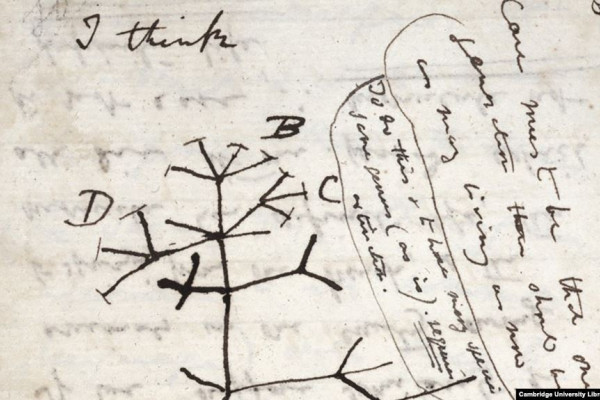 I think
B
C
D
Case must be that one
generation then should be
as many living as now
To do this & to have many species
same genus (as is). requires
extinction.
Cambridge University Libr